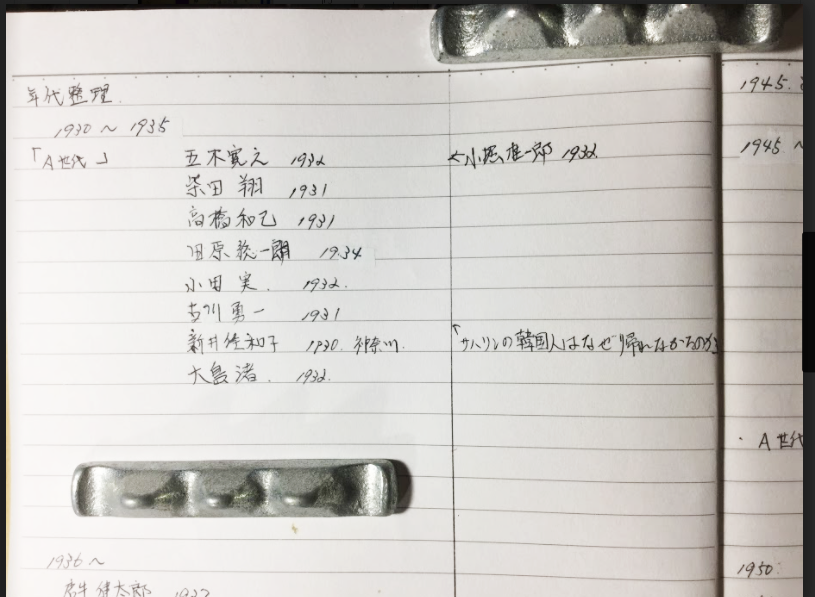 年代整理
1930 ~ 1935
「A世代」 五木寛之 1932
←小堀桂一郎 1932
柴田 翔 1931
高橋和己 1931
田原総一朗 1934
小田 実. 1932.
吉川勇一 1931
新井佐和子 1930. 神奈川.
↑サハリンの韓国人はなぜ帰れなかったのか
大島渚. 1932.
1936 ~
健太郎 1937
1945.
1945 ~
・A世代
1950.